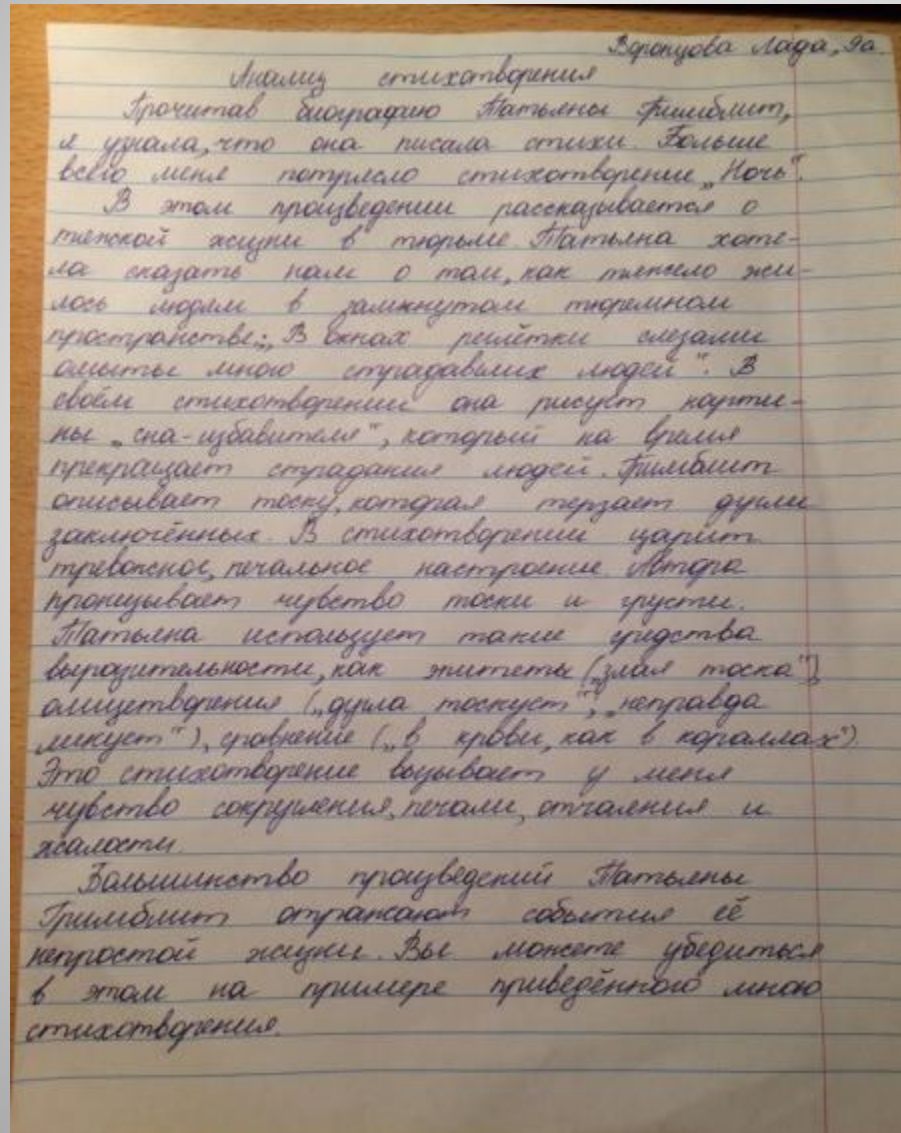 Воронцова Лада, 9а
Анализ стихотворения
Прочитав биографию Татьяны Гримблит,
я узнала, что она писала стихи. Больше
всего меня потрясло стихотворение „Ночь".
В этом произведении рассказывается о
тяжкой жизни в тюрьме. Татьяна хоте-
ла сказать нам о том, как тяжело жи-
лось людям в замкнутом тюремном
пространстве: „В окнах решётки слезами
омыты много страдавших людей". В
своём стихотворении она рисует карти-
ны „сна-избавителя", который на время
прекращает страдания людей. Гримблит
описывает тоску, которая терзает души
заключённых. В стихотворении царит
тревожное, печальное настроение. Автора
пронизывает чувство тоски и грусти.
Татьяна использует такие средства
выразительности, как эпитеты („злая тоска"),
олицетворения („душа тоскует", „неправда
ликует"), сравнение („в крови, как в кораллах").
Это стихотворение вызывает у меня
чувство сокрушения, печали, отчаяния и
жалости.
Большинство произведений Татьяны
Гримблит отражают события её
непростой жизни. Вы можете убедиться
в этом на примере приведённого мною
стихотворения.